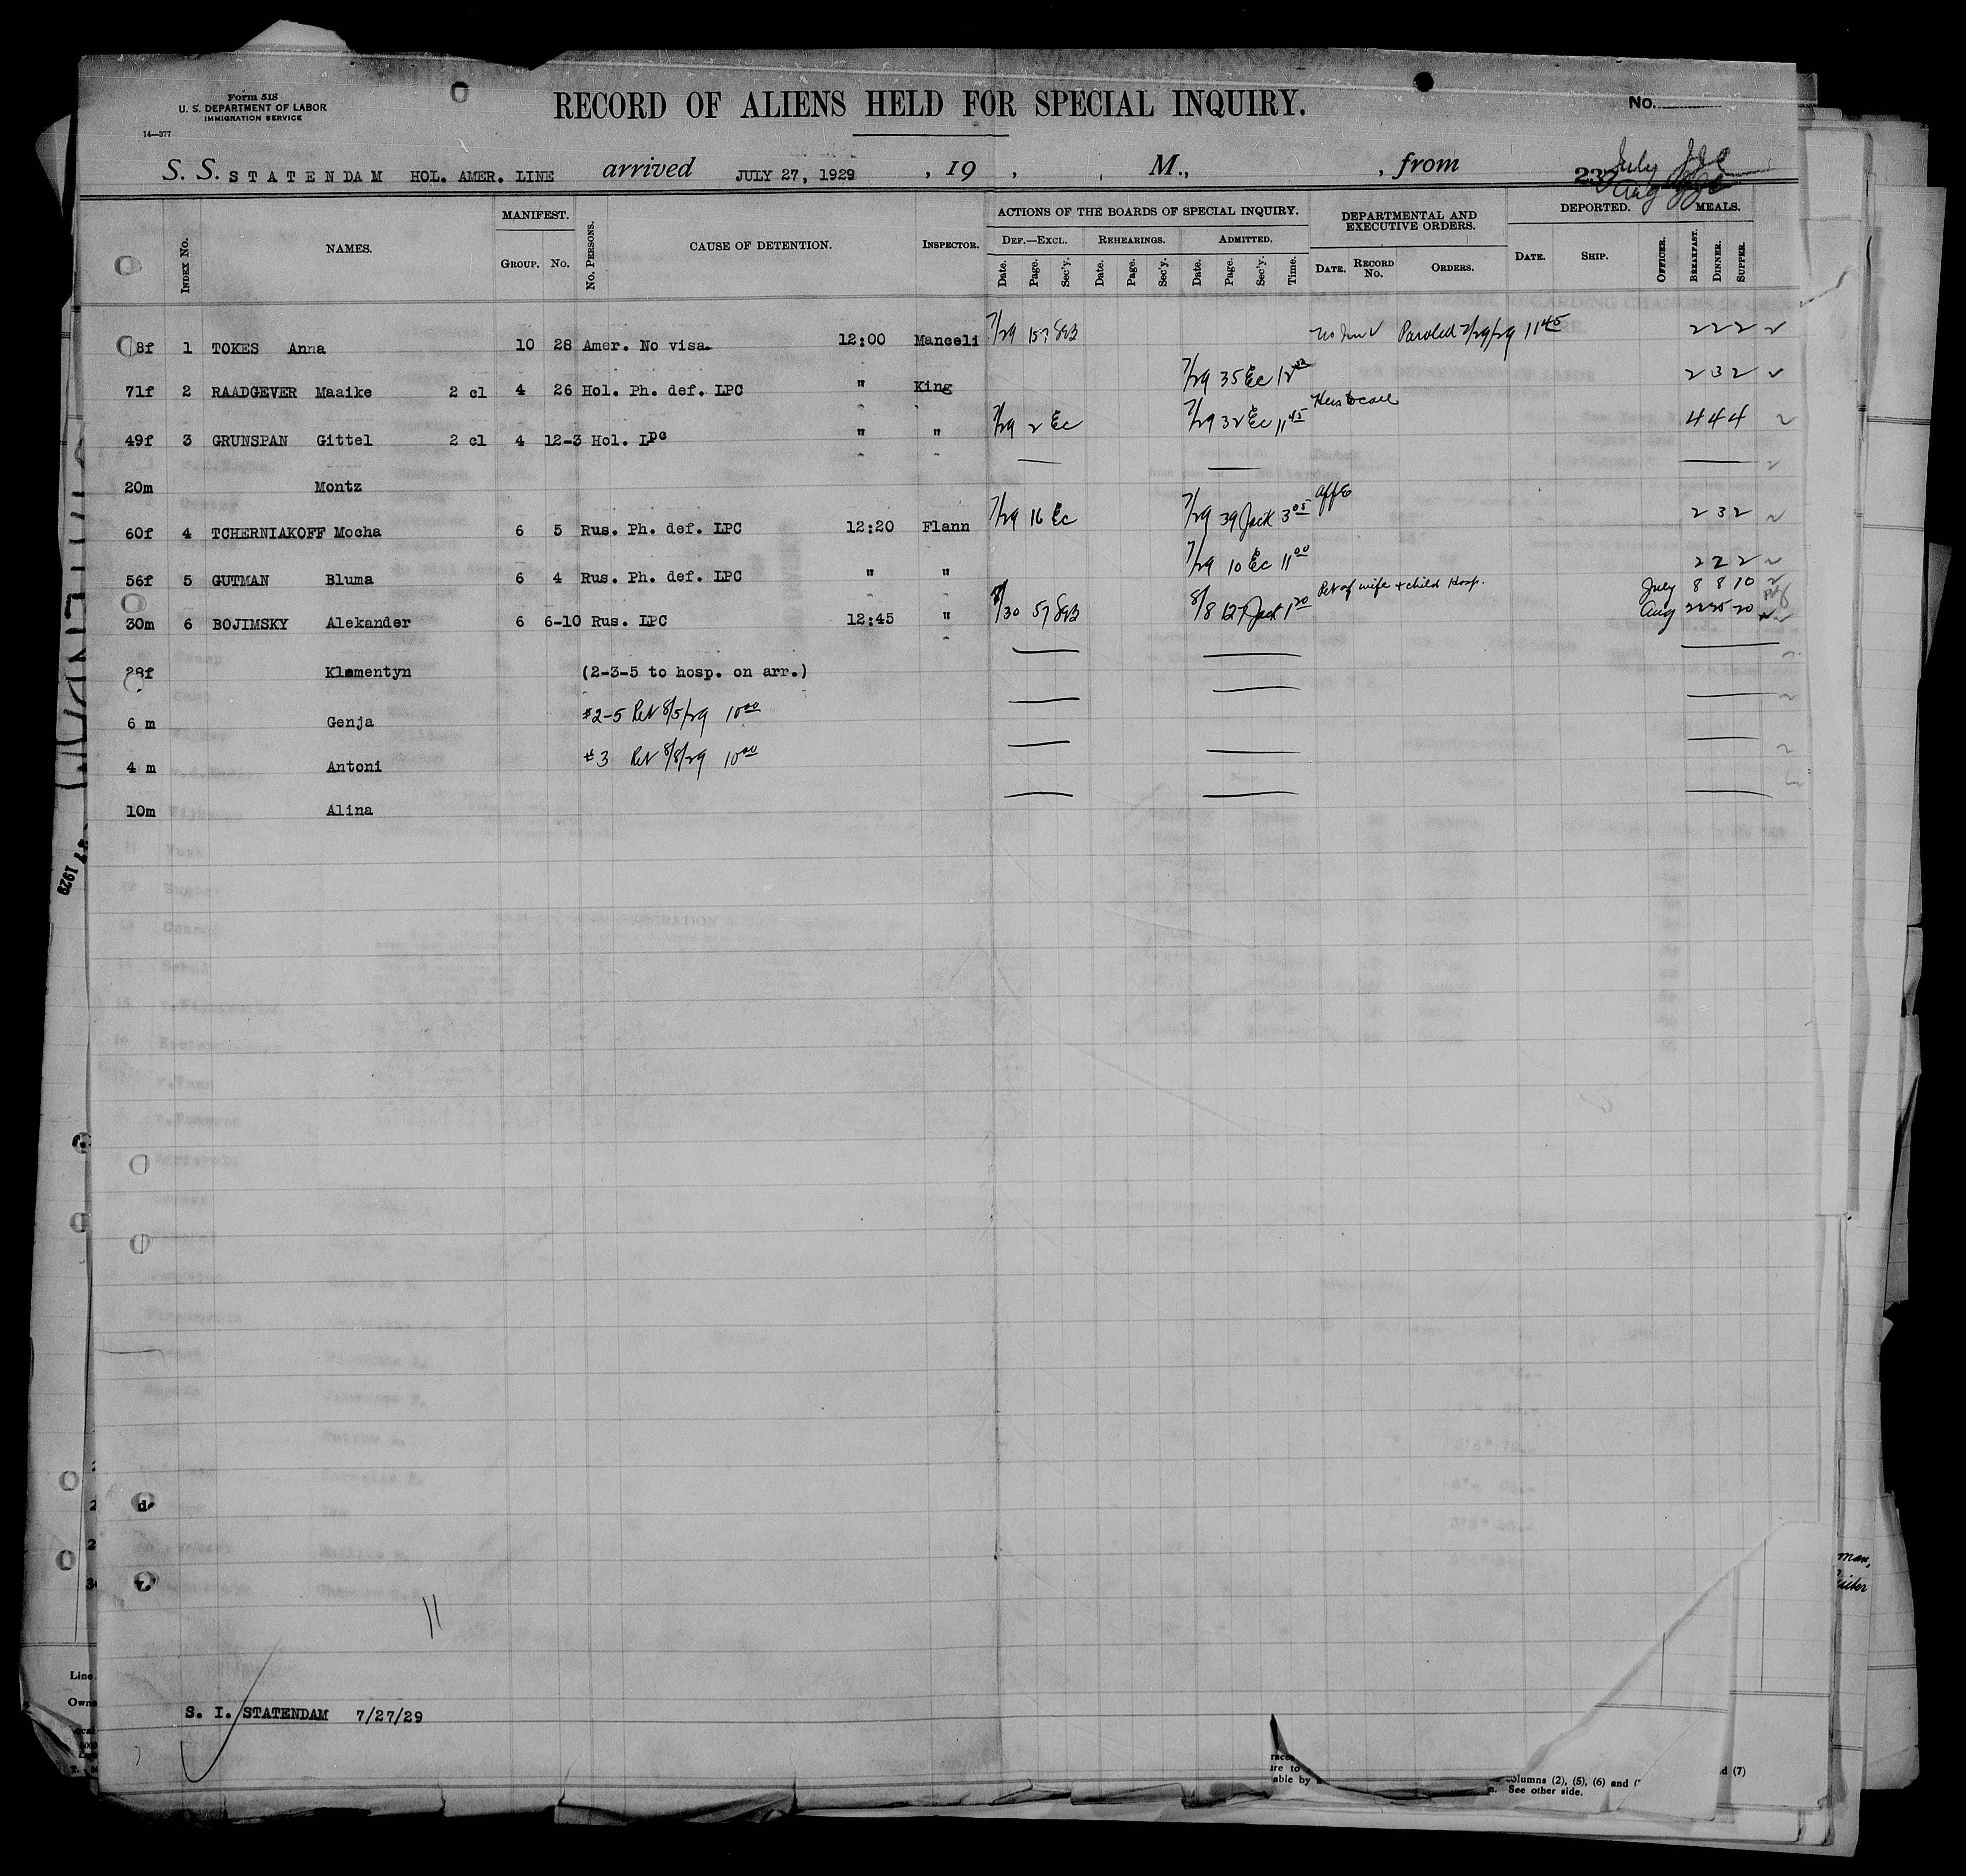 Form 518
U. S. DEPARTMENT OF LABOR
IMMIGRATION SERVICE
14—377
RECORD OF ALIENS HELD FOR SPECIAL INQUIRY.
No.
S. S. STATENDAM HOL. AMER. LINE arrived JULY 27, 1929 , 19 , , M., , from
23 July
Aug
INDEX No. NAMES. MANIFEST. GROUP. No. No. PERSONS. CAUSE OF DETENTION. INSPECTOR. ACTIONS OF THE BOARDS OF SPECIAL INQUIRY. DEF.—EXCL. Date. Page. Sec'y. REHEARINGS. Date. Page. Sec'y. ADMITTED. Date. Page. Sec'y. Time. DEPARTMENTAL AND EXECUTIVE ORDERS. DATE. RECORD No. ORDERS. DEPORTED. DATE. SHIP. OFFICER. MEALS. BREAKFAST. DINNER. SUPPER.
8f 1 TOKES Anna 10 28 Amer. No visa 12:00 Manceli 7/29 157 Paroled 7/29/29 11 45 2 2 2
71f 2 RAADGEVER Maaike 2 cl 4 26 Hol. Ph. def. LPC " King 7/29 35 Ec 2 3 2
49f 3 GRUNSPAN Gittel 2 cl 4 12-3 Hol. LPC " " 7/29 2 Ec 7/29 32 Ec 11 45 4 4 4
20m Montz
60f 4 TCHERNIAKOFF Mocha 6 5 Rus. Ph. def. LPC 12:20 Flann 7/29 16 Ec 7/29 39 Jack 3 05 2 3 2
56f 5 GUTMAN Bluma 6 4 Rus. Ph. def. LPC " " 7/29 10 Ec 11 00 2 2 2
30m 6 BOJIMSKY Alekander 6 6-10 Rus. LPC 12:45 " 57 8/8 127 Jack 1 20 Ret of wife + child Hosp. July 8 8 10
Aug
28f Klementyn (2-3-5 to hosp. on arr.)
6 m Genja #2-5 Ret 8/5/29 10 00
4 m Antoni #3 Ret 8/8/29 10 00
10m Alina
11
S. I. STATENDAM 7/27/29
1929
Line
Owne
able by
olumns (2), (5), (6) and
See other side.
d (7)
man,